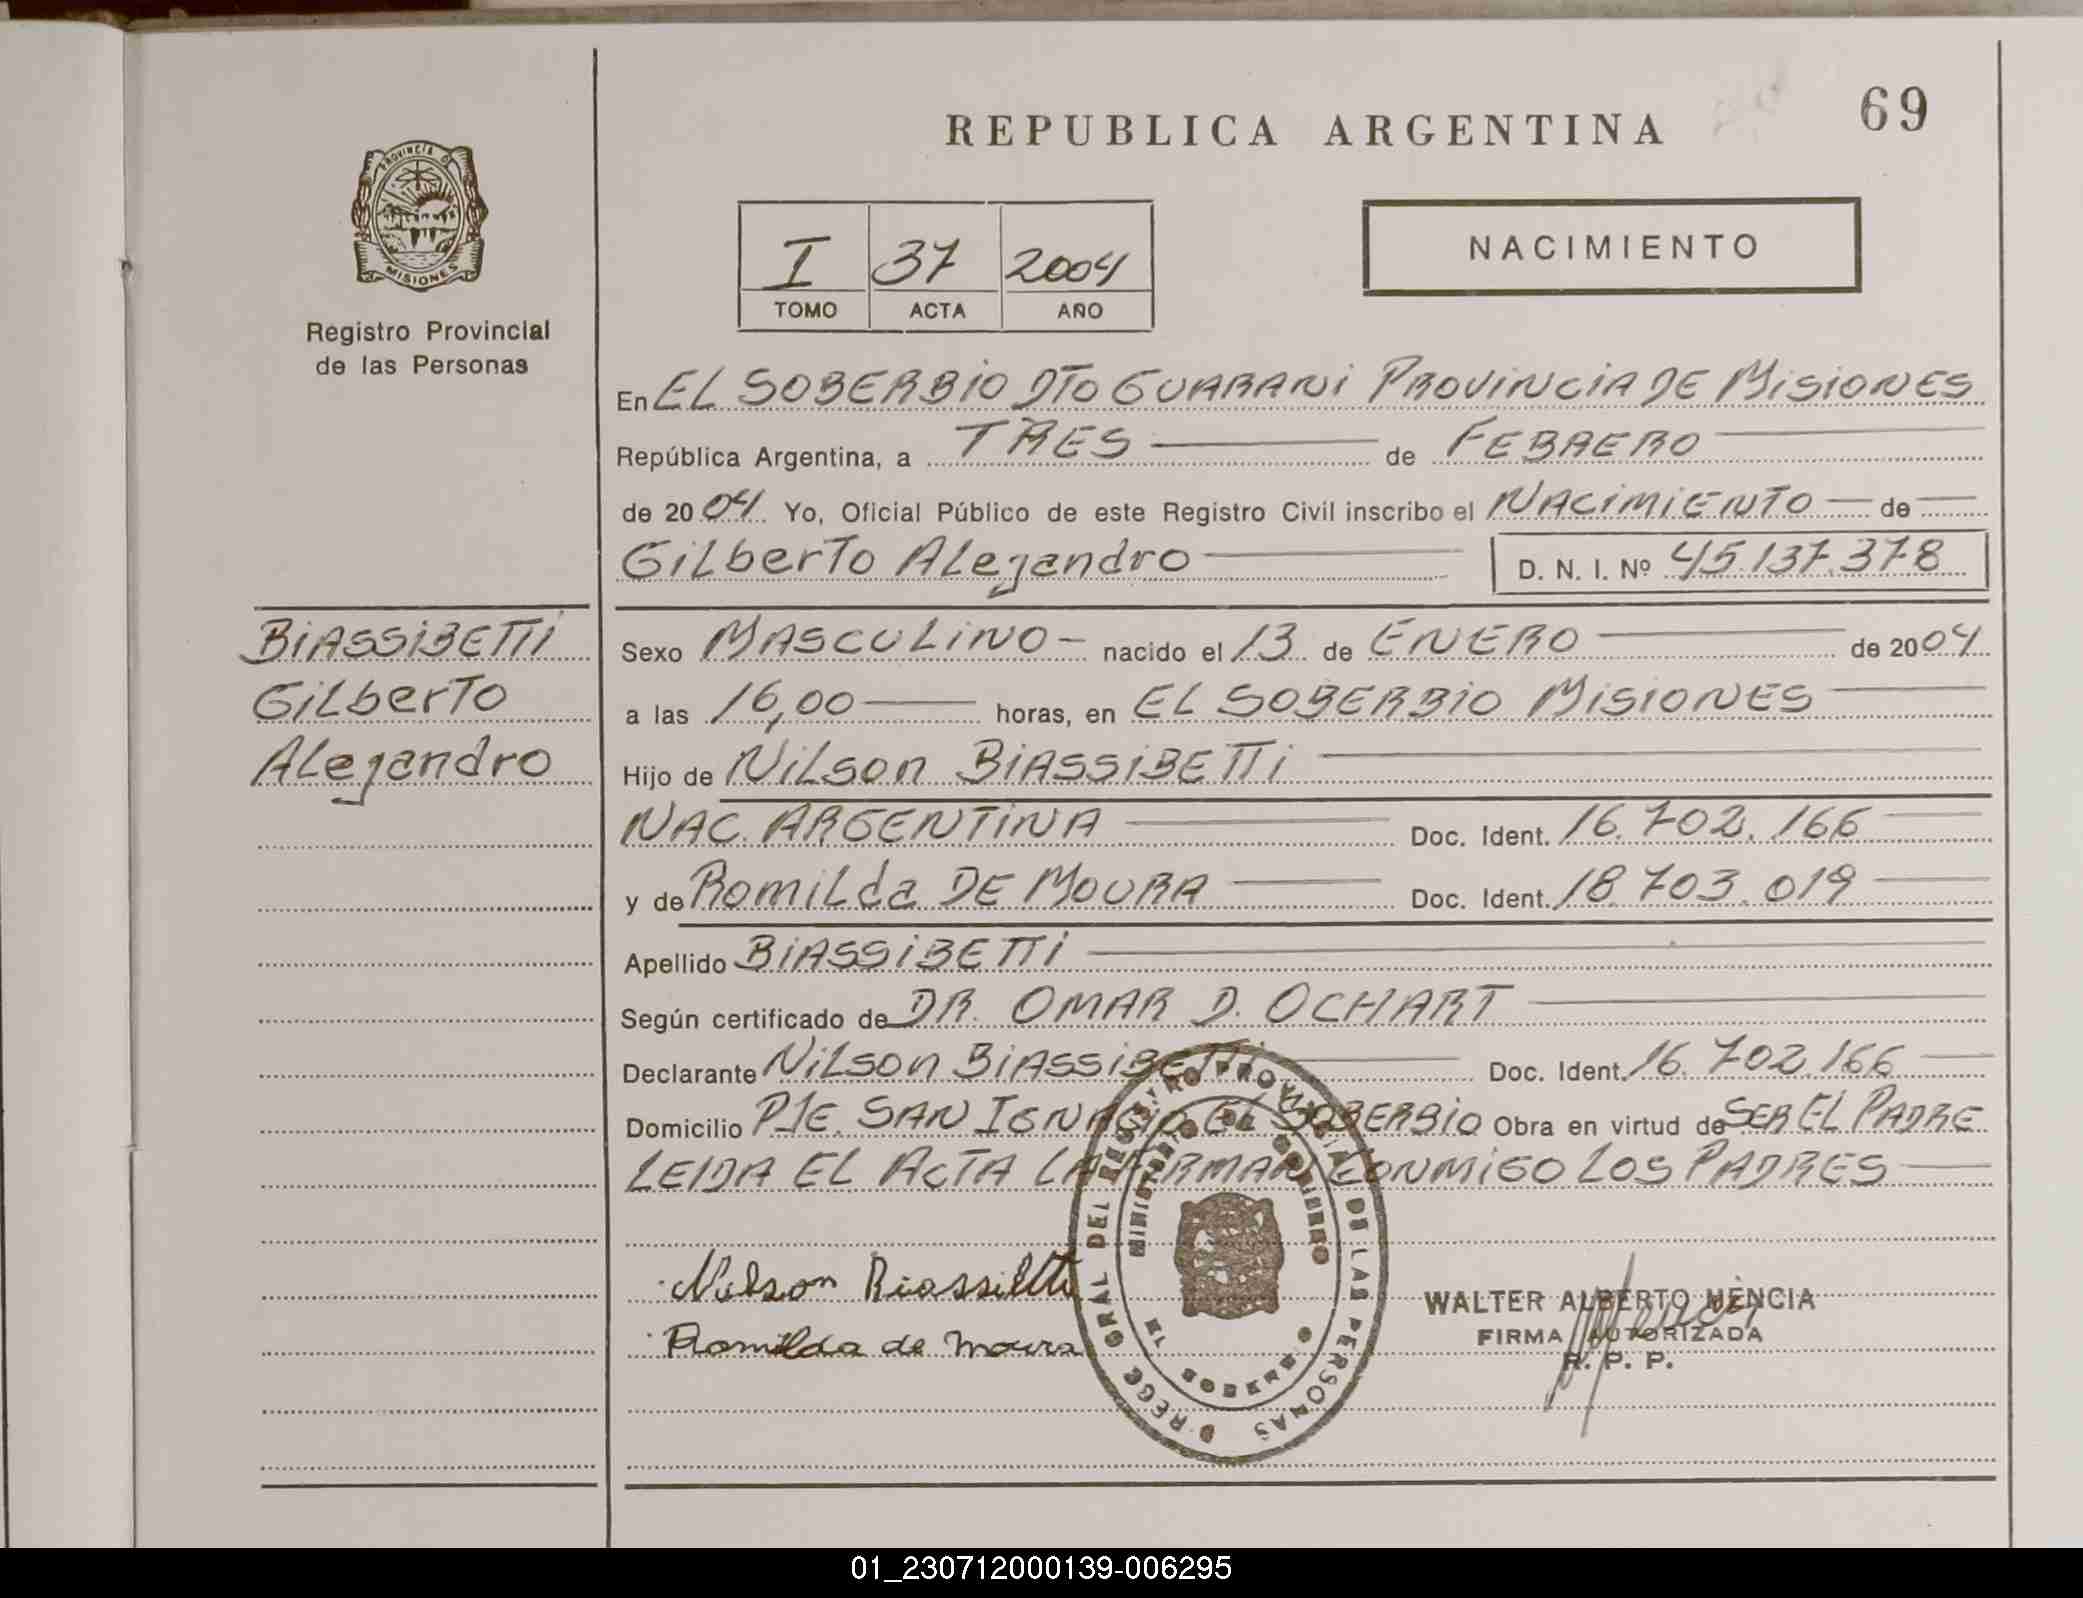 REPUBLICA ARGENTINA
69
PROVINCIA DE
MISIONES
Registro Provincial
de las Personas
I 37 2004
TOMO ACTA AÑO
NACIMIENTO
En EL SOBERBIO DTO GUARANI PROVINCIA DE MISIONES
República Argentina, a TRES de FEBRERO
de 2004 Yo, Oficial Público de este Registro Civil inscribo el NACIMIENTO de
Gilberto Alejandro D. N. I. Nº 45.137.378
BIASSIBETTI
Gilberto
Alejandro
Sexo MASCULINO - nacido el 13 de ENERO de 2004
a las 16,00 horas, en EL SOBERBIO MISIONES
Hijo de Nilson BIASSIBETTI
NAC. ARGENTINA Doc. Ident. 16.702.166
y de Romilda DE MOURA Doc. Ident. 18.703.019
Apellido BIASSIBETTI
Según certificado de DR. OMAR D. OCHART
Declarante Nilson BIASSIBETTI Doc. Ident. 16.702.166
Domicilio PJE. SAN IGNACIO EL SOBERBIO Obra en virtud de SER EL PADRE
LEIDA EL ACTA LA FIRMAN CONMIGO LOS PADRES
Nilson Biassibetti
Romilda de Moura
GRAL DEL REGISTRO PROVINCIAL DE LAS PERSONAS
MINISTERIO DE GOBIERNO
EL SOBERBIO
WALTER ALBERTO MENCIA
FIRMA AUTORIZADA
R. P. P.
01_230712000139-006295